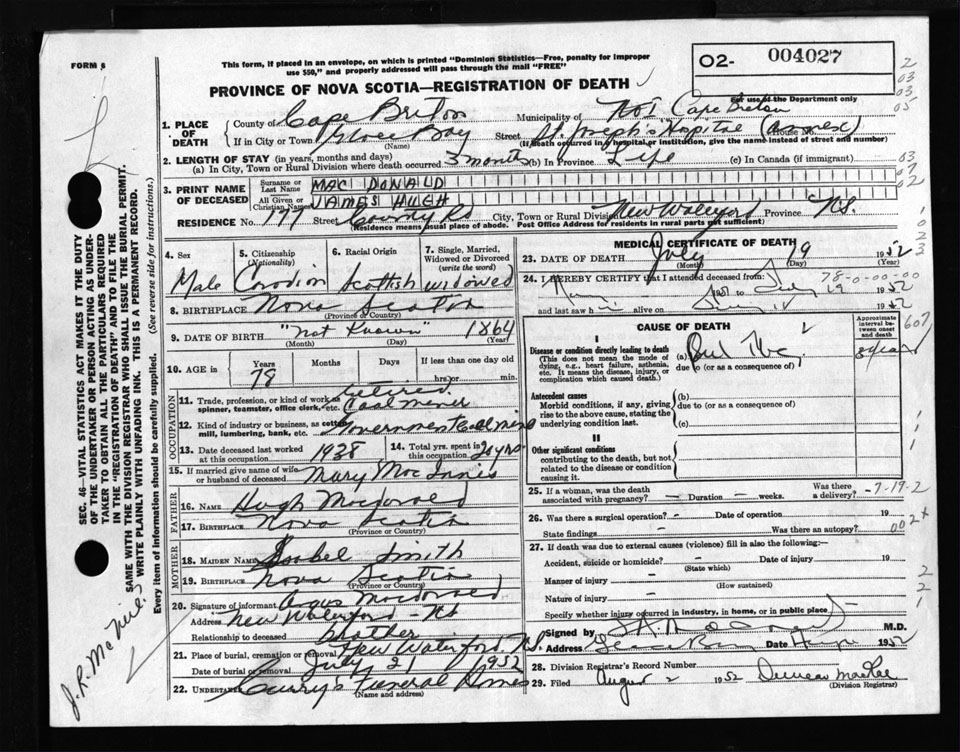 FORM 6
This form, if placed in an envelope, on which is printed "Dominion Statistics—Free, penalty for improper
use $50," and properly addressed will pass through the mail "FREE"
O2- 004027
For use of the Department only
PROVINCE OF NOVA SCOTIA—REGISTRATION OF DEATH
1. PLACE OF DEATH
County of Cape Breton Municipality of No 1 Cape Breton
If in City or Town Glace Bay Street St. Joseph's Hospital (Annex) House No.
(Name) (If death occurred in a hospital or institution, give the name instead of street and number)
2. LENGTH OF STAY (in years, months and days)
(a) In City, Town or Rural Division where death occurred 3 months (b) In Province Life (c) In Canada (if immigrant)
3. PRINT NAME OF DECEASED
Surname or Last Name MAC DONALD
All Given or Christian Names JAMES HUGH
RESIDENCE No. 177 Street County Rd City, Town or Rural Division New Waterford Province N.S.
(Residence means usual place of abode. Post Office Address for residents in rural parts not sufficient)
4. Sex Male
5. Citizenship (Nationality)
6. Racial Origin Scottish
7. Single, Married, Widowed or Divorced (write the word) widowed
8. BIRTHPLACE Nova Scotia
(Province or Country)
9. DATE OF BIRTH "Not Known" 1864
(Month) (Day) (Year)
10. AGE in Years 78 Months Days If less than one day old
hrs. or min.
OCCUPATION
11. Trade, profession, or kind of work as spinner, teamster, office clerk, etc. retired Coal miner
12. Kind of industry or business, as cotton mill, lumbering, bank, etc. Government Coal mine
13. Date deceased last worked at this occupation 1938
14. Total yrs. spent in this occupation 20 yrs
15. If married give name of wife or husband of deceased Mary MacInnis
FATHER
16. NAME Hugh Macdonald
17. BIRTHPLACE Nova Scotia
(Province or Country)
MOTHER
18. MAIDEN NAME Isobel Smith
19. BIRTHPLACE Nova Scotia
(Province or Country)
20. Signature of informant Angus Macdonald
Address New Waterford NS
Relationship to deceased brother
21. Place of burial, cremation or removal New Waterford N.S.
Date of burial or removal July 21 1952
22. UNDERTAKER Curry's Funeral Homes
(Name and address)
MEDICAL CERTIFICATE OF DEATH
23. DATE OF DEATH July 19 1952
(Month) (Day) (Year)
78-0-00-00
24. I HEREBY CERTIFY that I attended deceased from
19 1952
and last saw h alive on 1952
CAUSE OF DEATH
Approximate interval between onset and death
607
I
Disease or condition directly leading to death
(This does not mean the mode of dying, e.g., heart failure, asthenia, etc. It means the disease, injury, or complication which caused death.)
(a)
due to (or as a consequence of)
Antecedent causes
Morbid conditions, if any, giving rise to the above cause, stating the underlying condition last.
(b)
due to (or as a consequence of)
(c)
II
Other significant conditions
contributing to the death, but not related to the disease or condition causing it.
25. If a woman, was the death associated with pregnancy? - Duration - weeks. Was there a delivery? -7-19-2
26. Was there a surgical operation? - Date of operation 19
State findings - Was there an autopsy?
27. If death was due to external causes (violence) fill in also the following:—
Accident, suicide or homicide? Date of injury 19
(State which)
Manner of injury -
(How sustained)
Nature of injury -
Specify whether injury occurred in industry, in home, or in public place
Signed by M.D.
Address Glace Bay Date 1952
28. Division Registrar's Record Number
29. Filed August 2 1952 Duncan MacRae
(Division Registrar)
SEC. 46—VITAL STATISTICS ACT MAKES IT THE DUTY
OF THE UNDERTAKER OR PERSON ACTING AS UNDER-
TAKER TO OBTAIN ALL THE PARTICULARS REQUIRED
IN THE "REGISTRATION OF DEATH" AND TO FILE THE
SAME WITH THE DIVISION REGISTRAR WHO SHALL ISSUE THE BURIAL PERMIT.
WRITE PLAINLY WITH UNFADING INK. THIS IS A PERMANENT RECORD.
Every item of information should be carefully supplied. (See reverse side for instructions.)
J.R. MacNeil